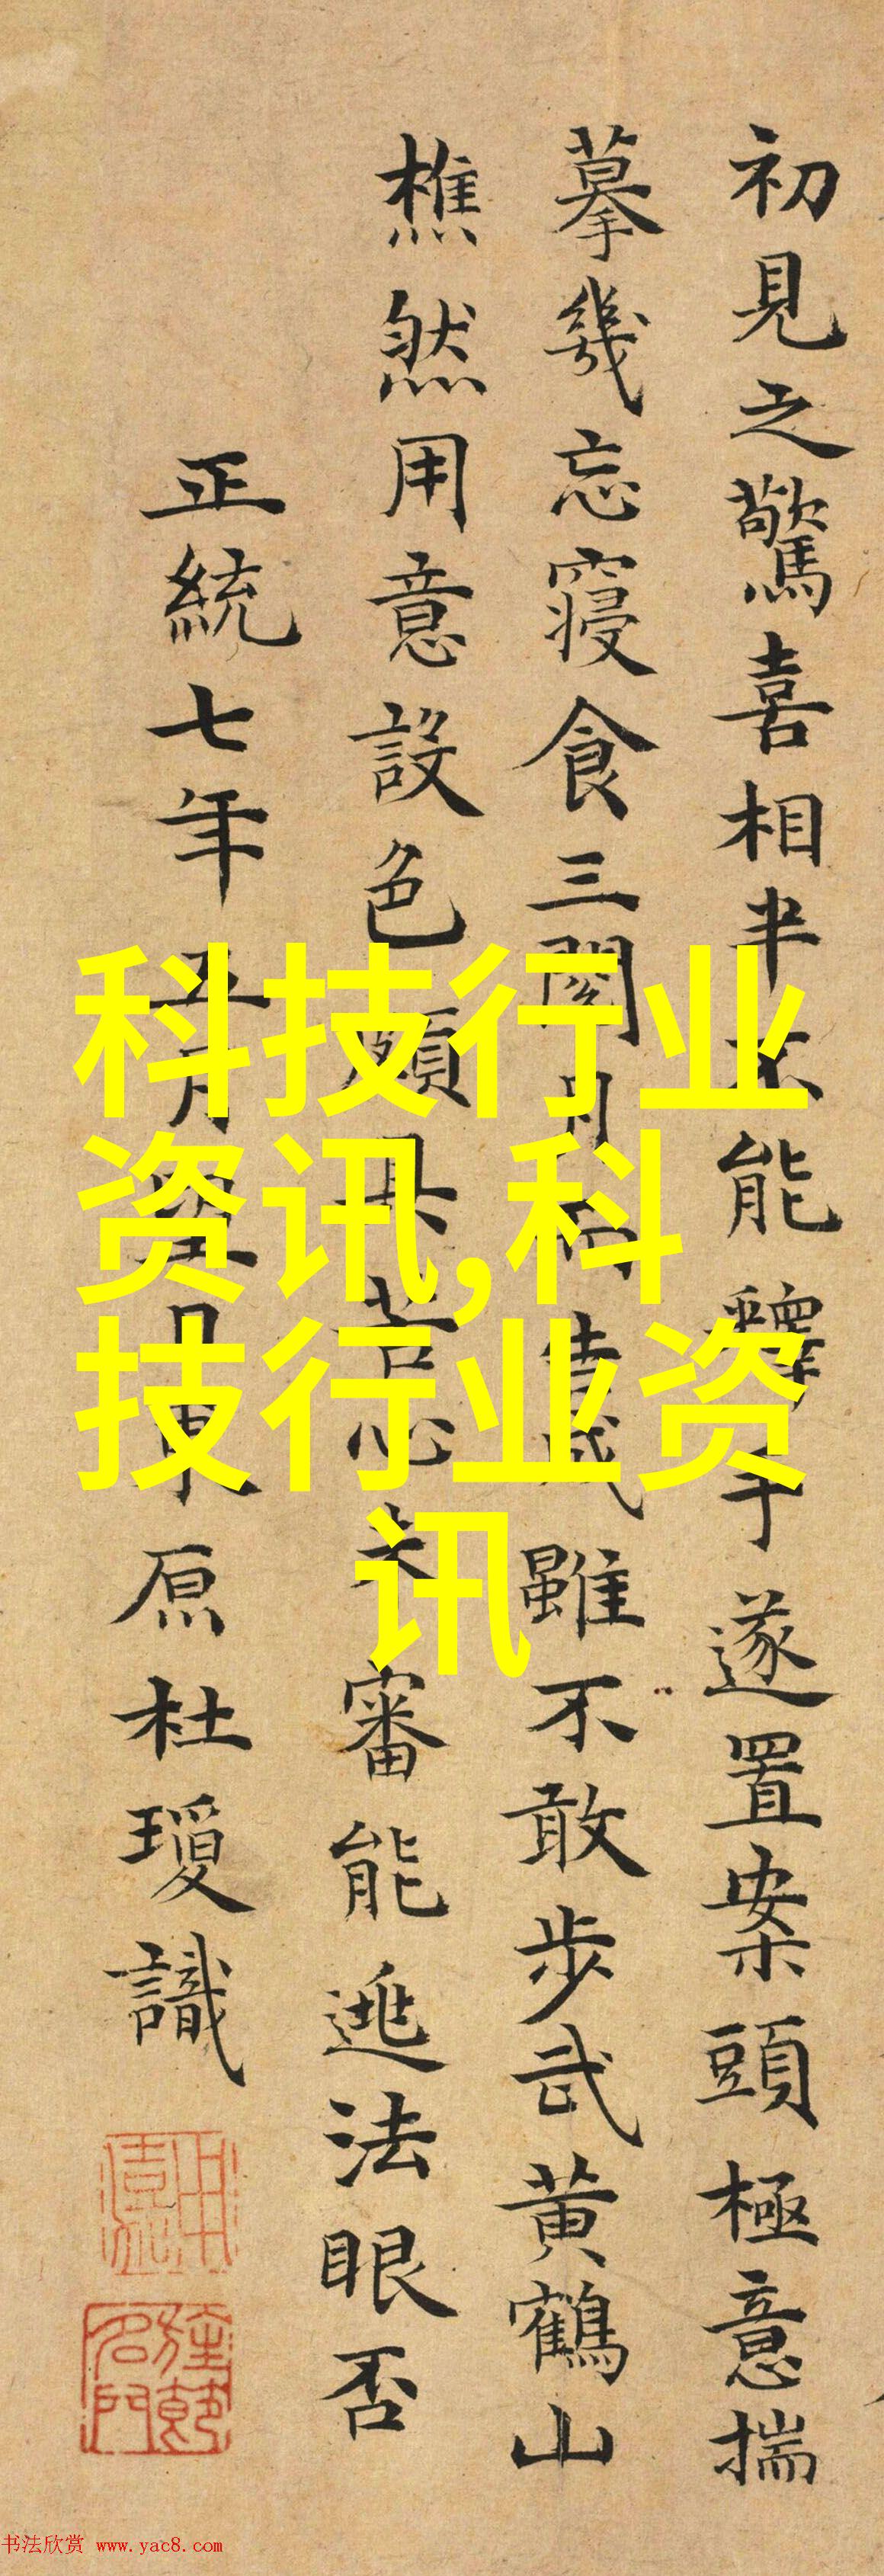 初見之驚喜相半不能釋手遂置案頭極意揣
摹幾忘寢食三閱月而
雖不敢步武黄鶴山
樵然用意設色頗
苦心未審能逃法眼否
正統七年五月望日東原杜瓊識
科技行业
资讯,科
技行业资
讯
书法欣赏 www.yac8.com